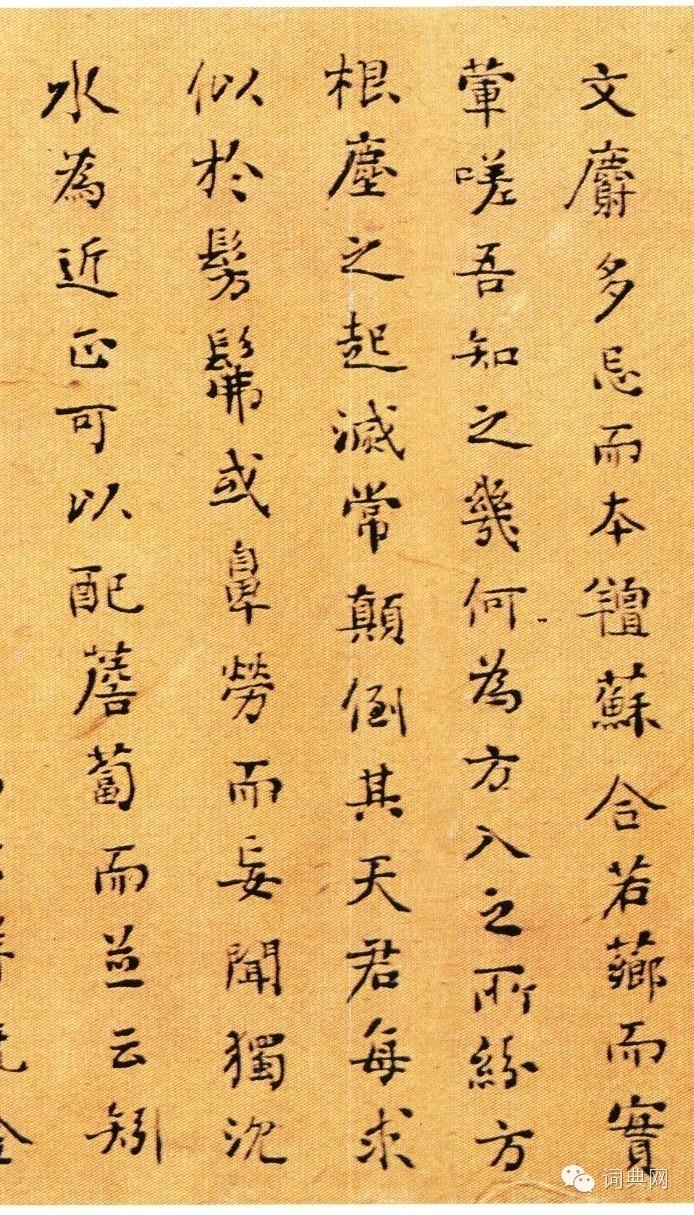 文麝多忌而本羶蘇合若薌而實
葷嗟吾知之幾何為方入之所紛方
根塵之起滅常顛倒其天君每求
似於髣髴或鼻勞而妄聞獨沈
水為近正可以配薝蔔而並云矧
词典网